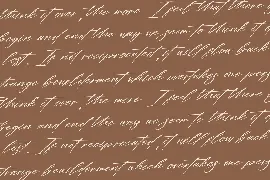 think it over, the more I feel that there
begins and end the way we seem to think it
lost. If not reciprocated, it will flow back
strange bewilderment which overtakes one
think it over, the more I feel that there
begin and end the way we seem to think it
lost. If not reciprocated, it will flow back
strange bewilderment which overtakes one